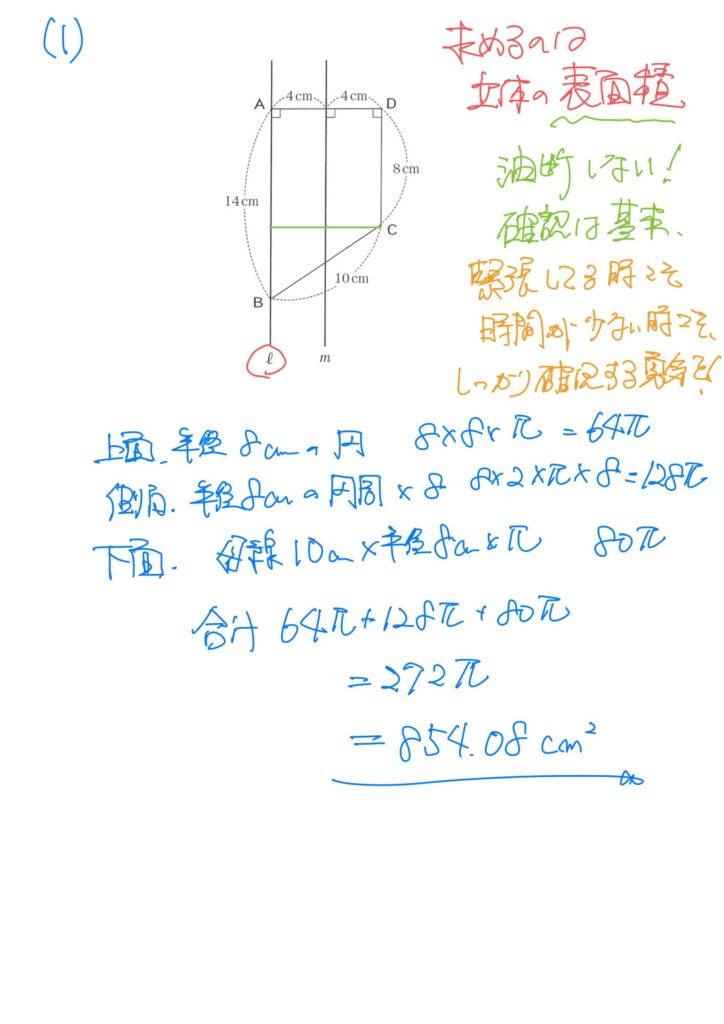 (1)
求めるのは
立体の表面積
4cm 4cm
A D
8cm
14cm
C
10cm
B
ℓ m
油断しない！
確認は基本、
緊張してる時こそ
時間が少ない時こそ、
しっかり確認する勇気を！
上面、半径8cmの円 8×8×π=64π
側面、半径8cmの円周×8 8×2×π×8=128π
下面、母線10cm×半径8cm×π 80π
合計 64π+128π+80π
=272π
=854.08cm²